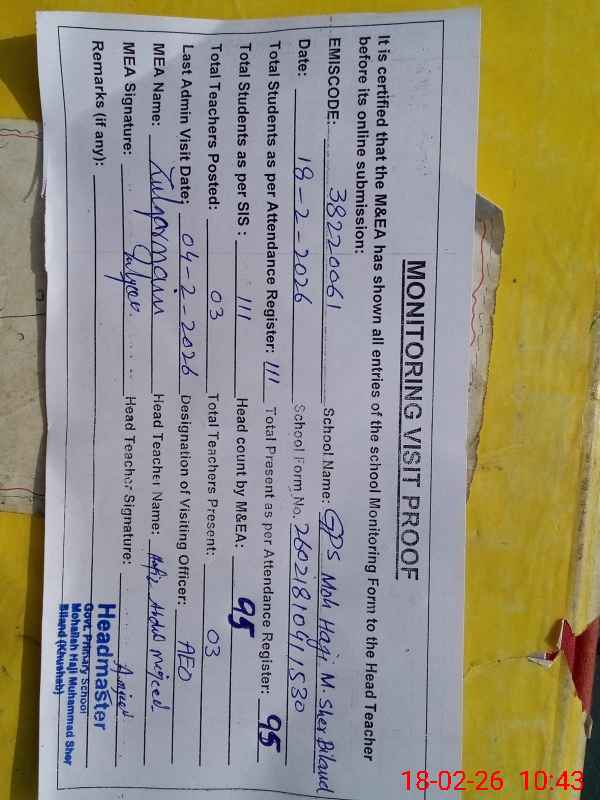 MONITORING VISIT PROOF
It is certified that the M&EA has shown all entries of the school Monitoring Form to the Head Teacher
before its online submission:
EMISCODE: 38220061 School Name: GPS Moh Haji M. Sher Biland
Date: 18-2-2026 School Form No. 26021810911530
Total Students as per Attendance Register: 111 Total Present as per Attendance Register: 95
Total Students as per SIS : 111 Head count by M&EA: 95
Total Teachers Posted: 03 Total Teachers Present: 03
Last Admin Visit Date: 04-2-2026 Designation of Visiting Officer: AEO
MEA Name: Zulqarnain Head Teacher Name: Hafiz Abdul Majeed
MEA Signature: Head Teacher Signature:
Remarks (if any):
Headmaster
Govt. Primary School
Mohallah Haji Muhammad Sher
Biland (Khushab)
18-02-26 10:43